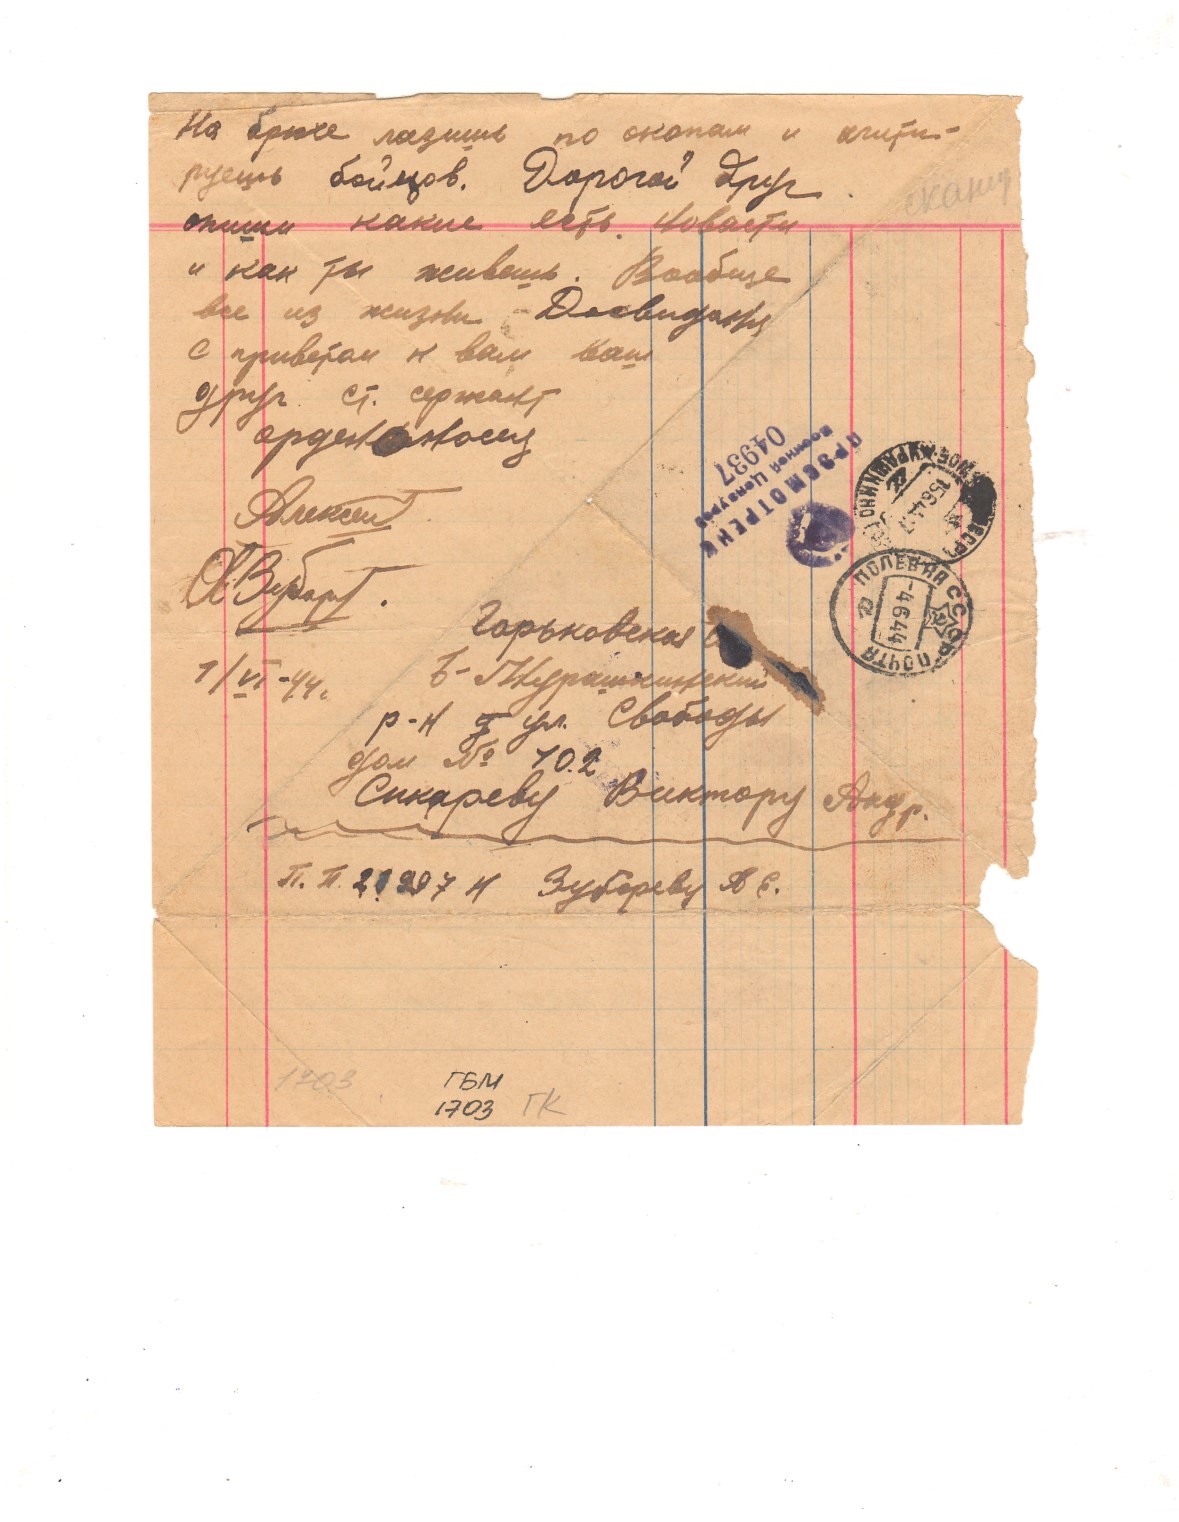 На брюхе лазишь по окопам и агити-
руешь бойцов. Дорогой друг
опиши какие есть новасти
и как ты живешь. Вообще
все из жизни Досвидания
с приветам к вам ваш
друг ст. сержант
орденоносец
Алексей
1/VI-44г.
сканир
ПРОСМОТРЕНО
Военной Цензурой
04937
ПОЛЕВАЯ ПОЧТА
-4 6 44
15 6 44
Горьковская
Б-Мурашкинский
р-н ул. Свободы
дом № 102
Сикареву Виктору Андр.
П.П. 21297 Н Зубареву А С.
1703
ГБМ
1703 ГК